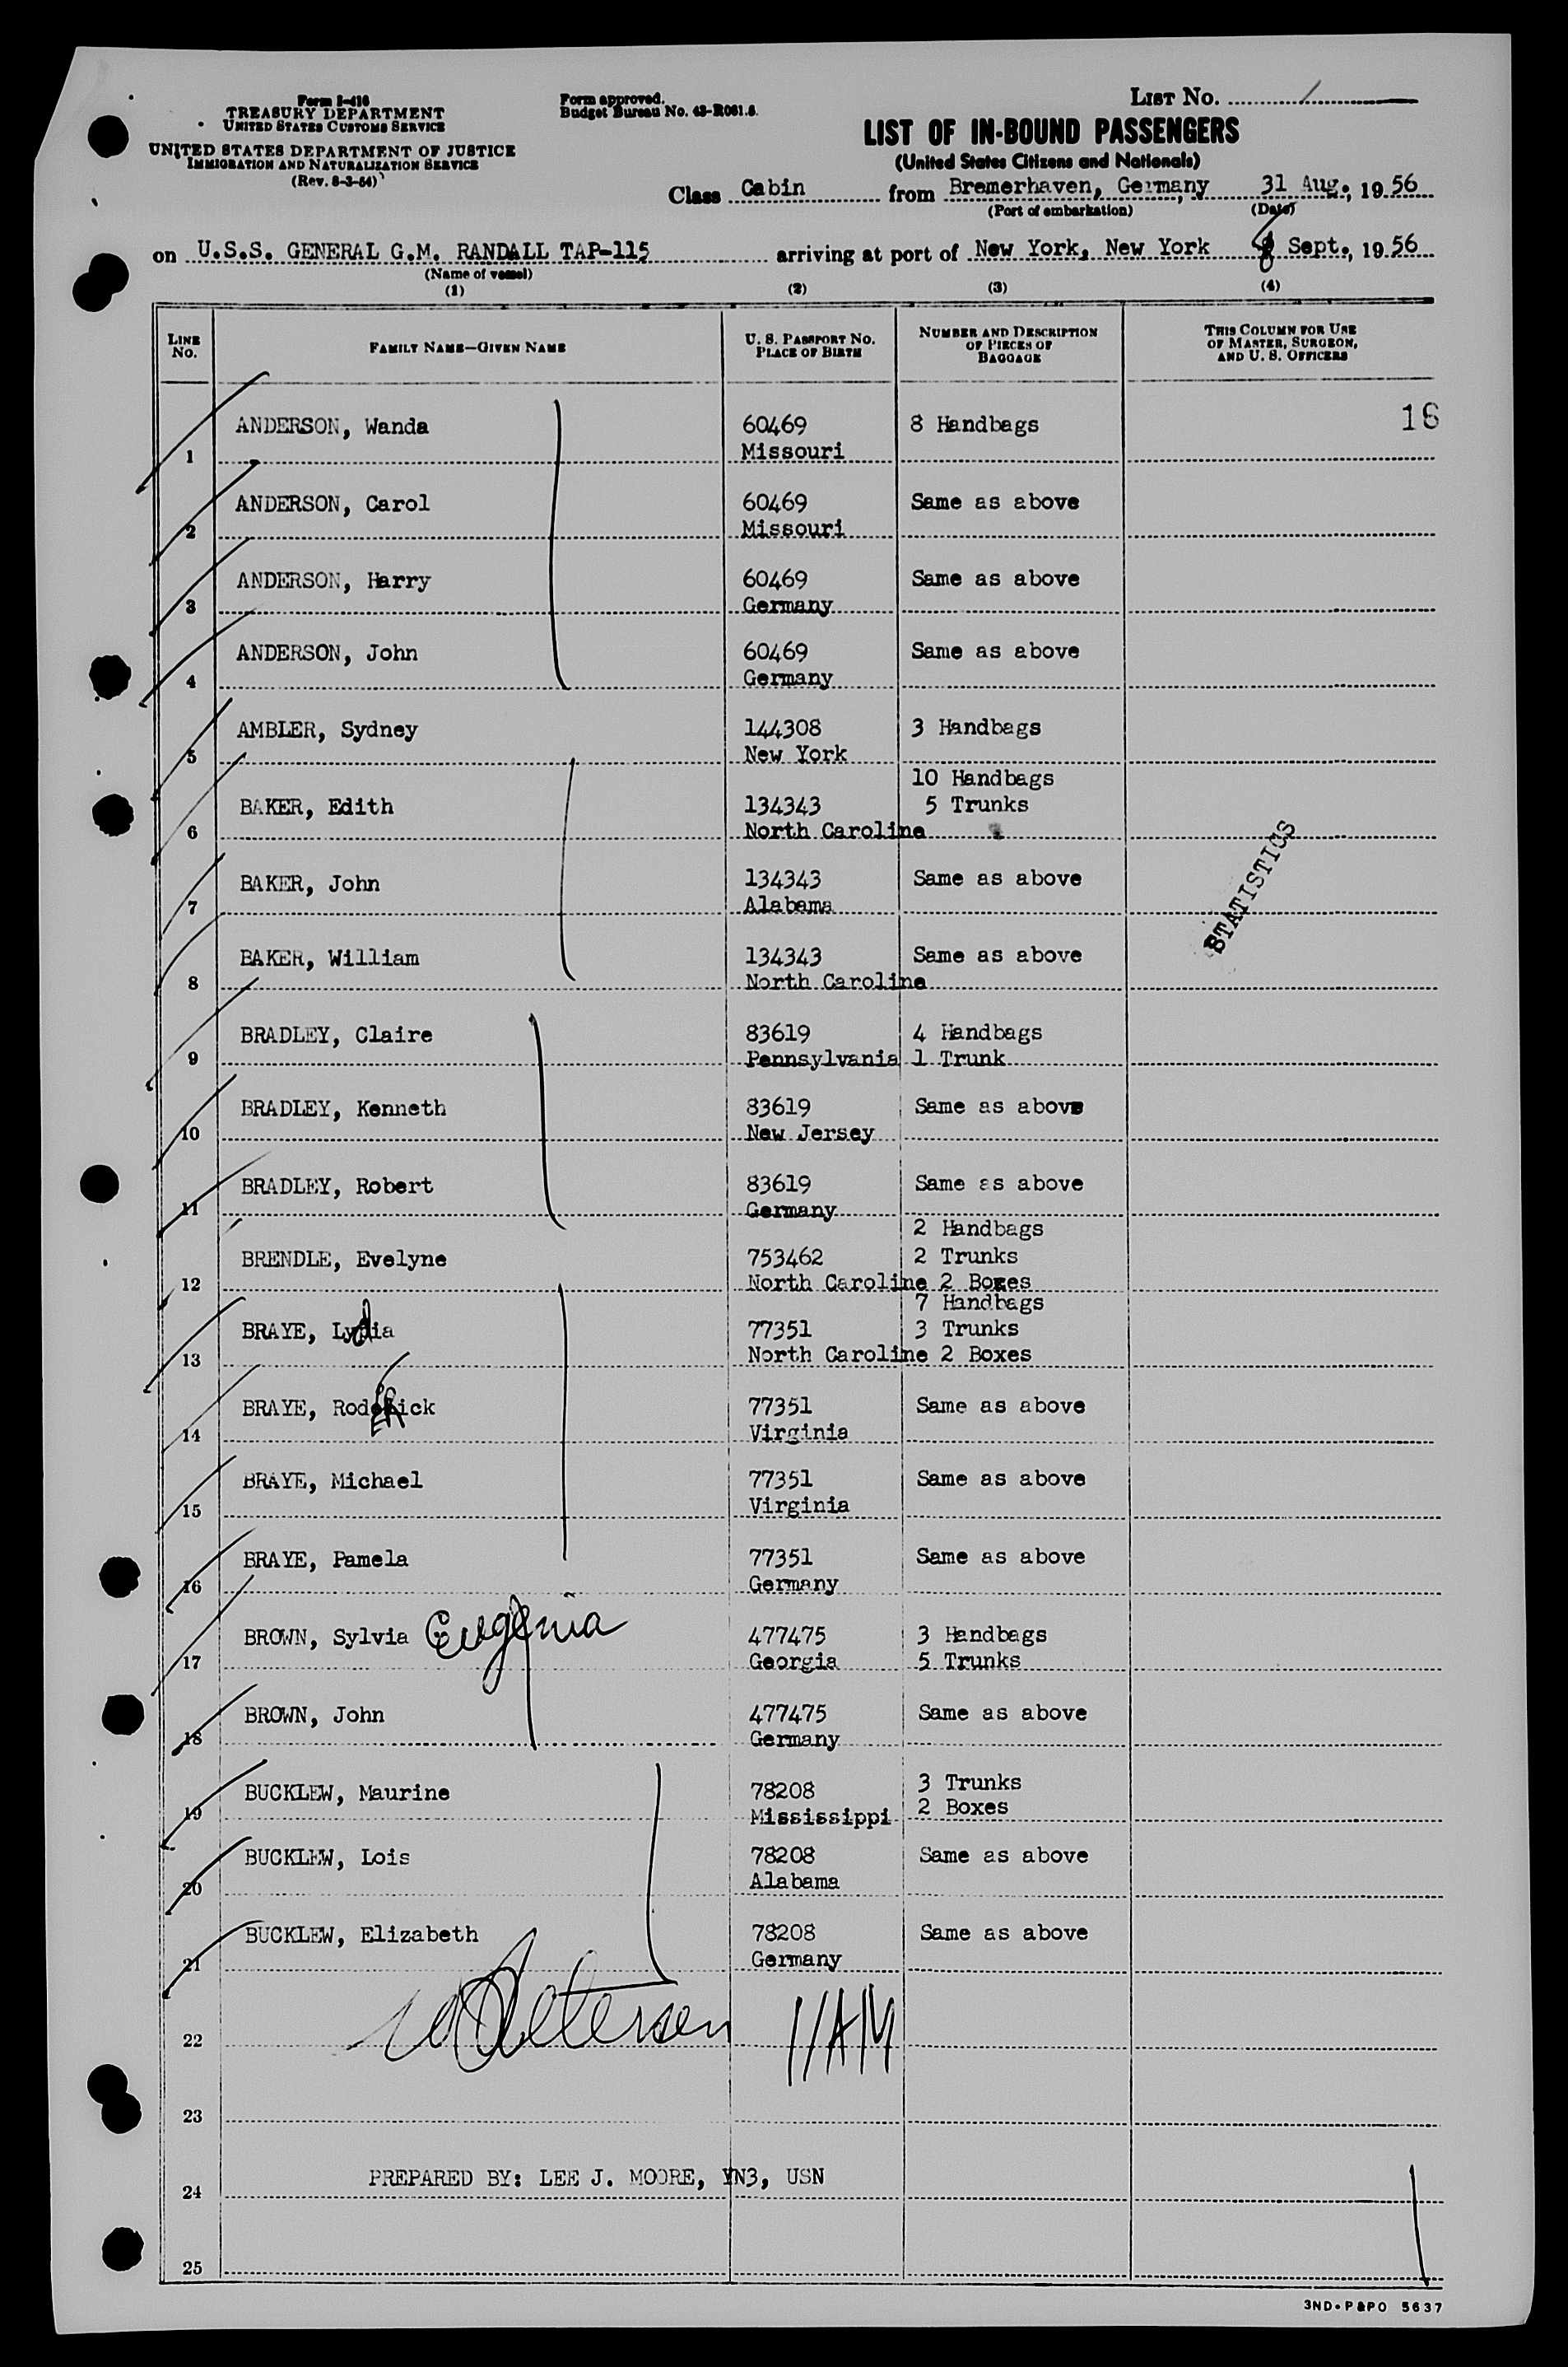 Form I-416
TREASURY DEPARTMENT
UNITED STATES CUSTOMS SERVICE
UNITED STATES DEPARTMENT OF JUSTICE
IMMIGRATION AND NATURALIZATION SERVICE
(Rev. 8-3-54)
Form approved.
Budget Bureau No. 43-R061.8.
LIST NO. /
LIST OF IN-BOUND PASSENGERS
(United States Citizens and Nationals)
Class Cabin from Bremerhaven, Germany, 31 Aug., 1956
(Port of embarkation) (Date)
on U.S.S. GENERAL G.M. RANDALL TAP-115 arriving at port of New York, New York 8 Sept., 1956
(Name of vessel)
(1) (2) (3) (4)
LINE NO. FAMILY NAME—GIVEN NAME U. S. PASSPORT NO. PLACE OF BIRTH NUMBER AND DESCRIPTION OF PIECES OF BAGGAGE THIS COLUMN FOR USE OF MASTER, SURGEON, AND U. S. OFFICERS
18
ANDERSON, Wanda 60469 8 Handbags
1 Missouri
ANDERSON, Carol 60469 Same as above
2 Missouri
ANDERSON, Harry 60469 Same as above
3 Germany
ANDERSON, John 60469 Same as above
4 Germany
AMBLER, Sydney 144308 3 Handbags
5 New York
10 Handbags
BAKER, Edith 134343 5 Trunks
6 North Caroline
BAKER, John 134343 Same as above
7 Alabama
STATISTICS
BAKER, William 134343 Same as above
8 North Caroline
BRADLEY, Claire 83619 4 Handbags
9 Pennsylvania 1 Trunk
BRADLEY, Kenneth 83619 Same as above
10 New Jersey
BRADLEY, Robert 83619 Same as above
11 Germany
2 Handbags
BRENDLE, Evelyne 753462 2 Trunks
12 North Caroline 2 Boxes
7 Handbags
BRAYE, Lydia 77351 3 Trunks
13 North Caroline 2 Boxes
BRAYE, Roderick 77351 Same as above
14 Virginia
BRAYE, Michael 77351 Same as above
15 Virginia
BRAYE, Pamela 77351 Same as above
16 Germany
BROWN, Sylvia Eugenia 477475 3 Handbags
17 Georgia 5 Trunks
BROWN, John 477475 Same as above
18 Germany
BUCKLEW, Maurine 78208 3 Trunks
19 Mississippi 2 Boxes
BUCKLEW, Lois 78208 Same as above
20 Alabama
BUCKLEW, Elizabeth 78208 Same as above
21 Germany
22 Petersen 11AM
23
PREPARED BY: LEE J. MOORE, YN3, USN
24
25
3ND-P&PO 5637